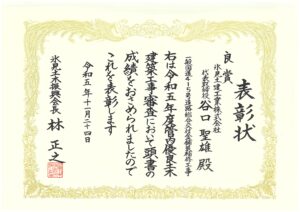 表彰状
良賞
氷見土建工業株式会社
代表取締役 谷口聖雄 殿
一般国道415号道路総合交付金舗装補修工事
右は令和五年度管内優良土木
建築工事審査において頭書の
成績をおさめられましたので
これを表彰します
令和五年十一月二十四日
氷見土木振興会長
林正之